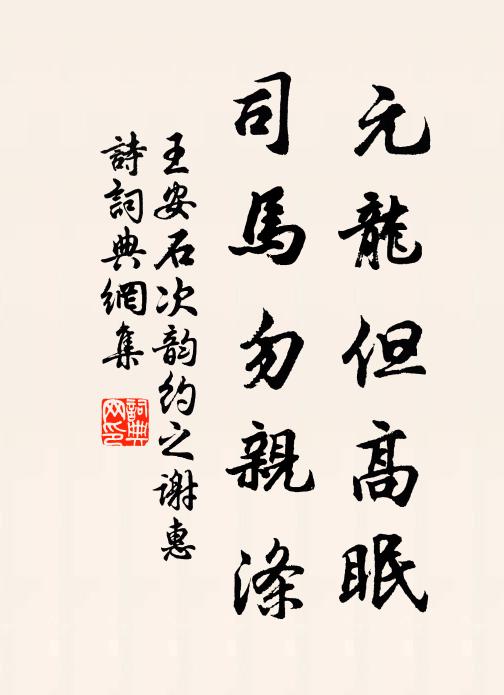 元龍但高眠
司馬勿親滌
王安石次韵約之謝惠
詩詞典網集
詞典網印